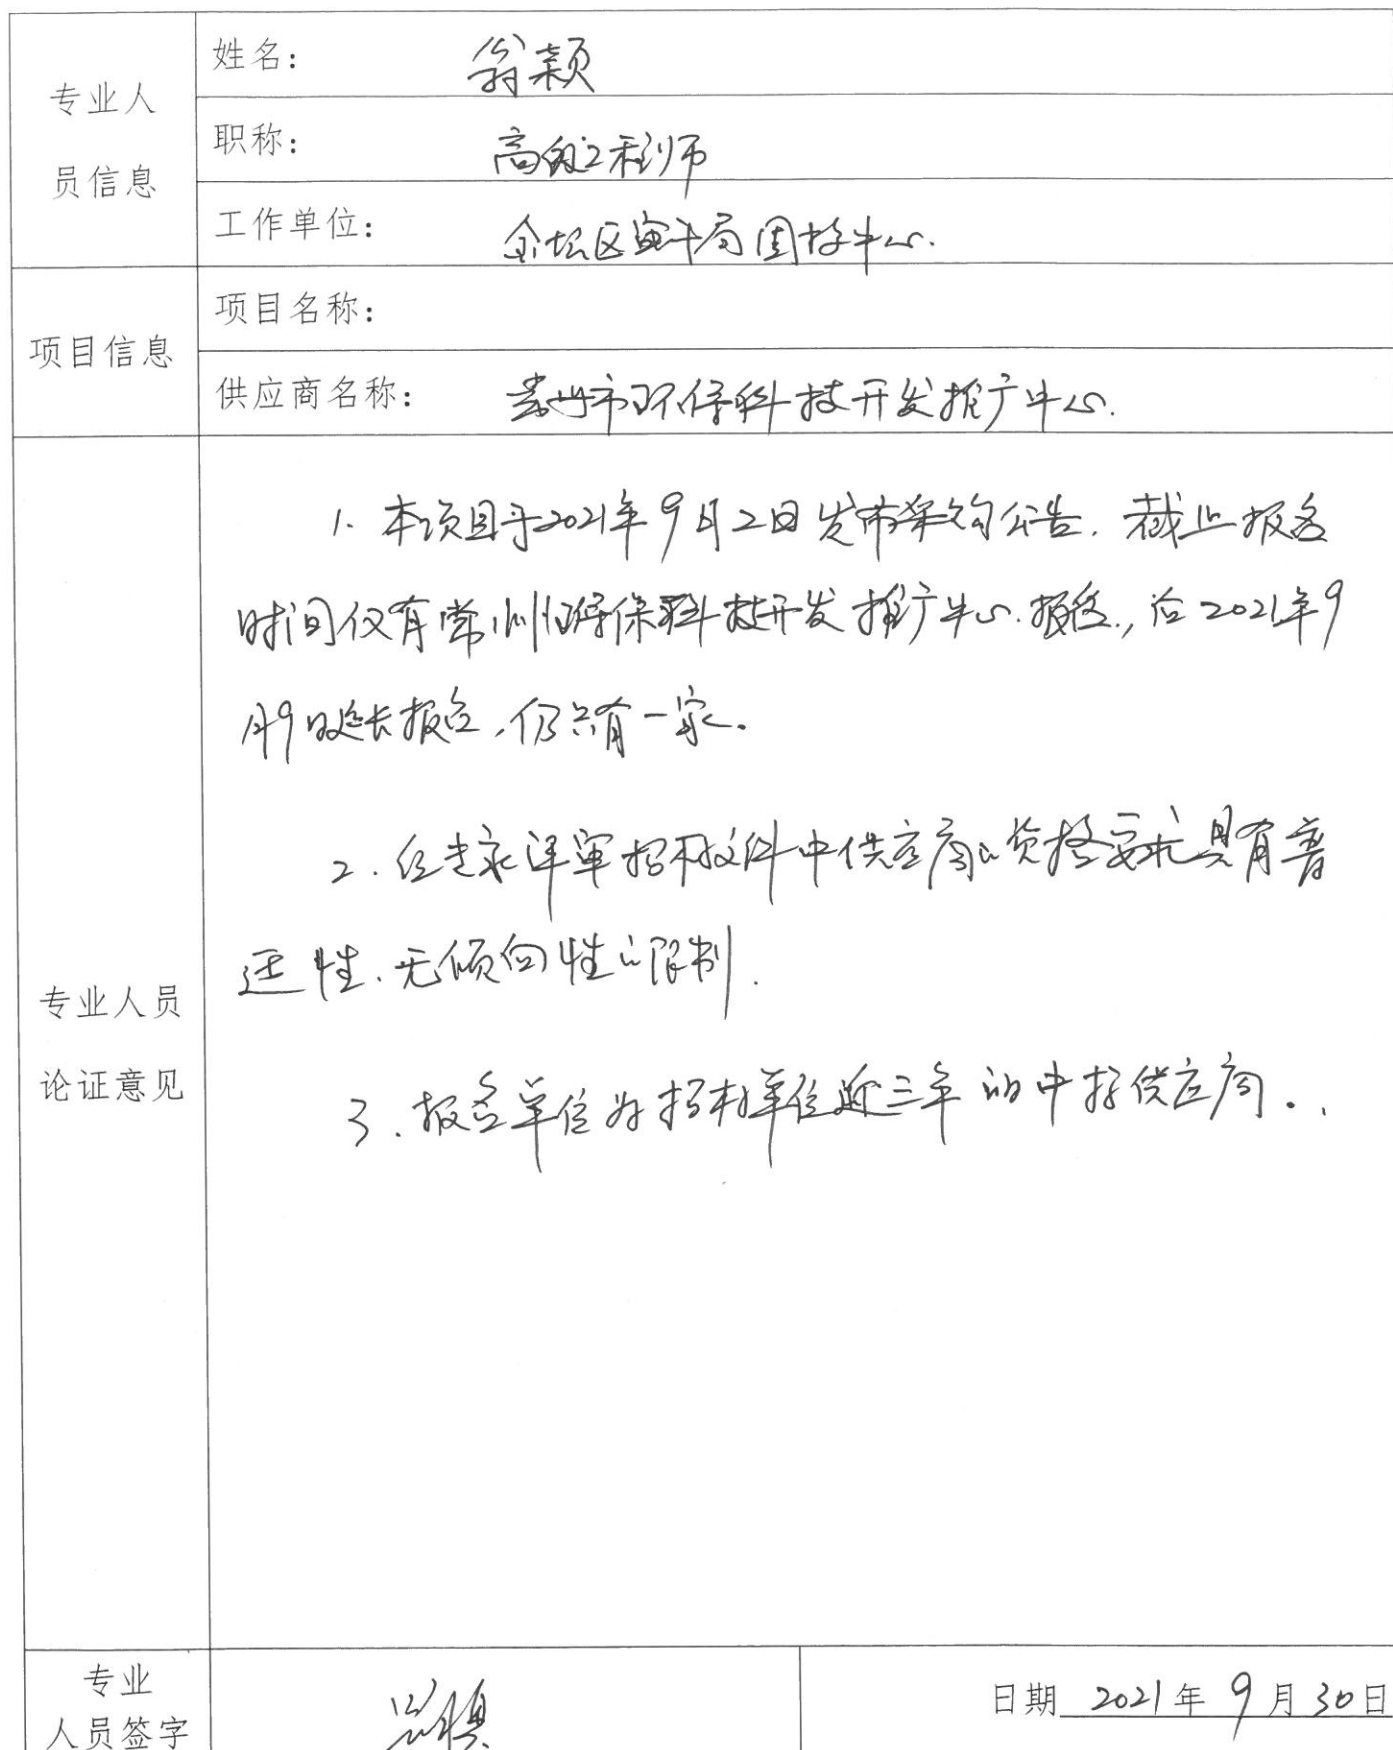 专业人
员信息
姓名: 翁颖
职称: 高级工程师
工作单位: 金坛区审计局固投中心.
项目信息
项目名称:
供应商名称: 常州市环保科技开发推广中心.
专业人员
论证意见
1. 本项目于2021年9月2日发布采购公告. 截止报名
时间仅有常州环保科技开发推广中心报名, 后2021年9
月9日延长报名, 仍只有一家.
2. 经专家评审招标文件中供应商的资格要求具有普
适性. 无倾向性的限制.
3. 报名单位为招标单位近三年的中标供应商.
专业
人员签字
日期 2021年9月30日